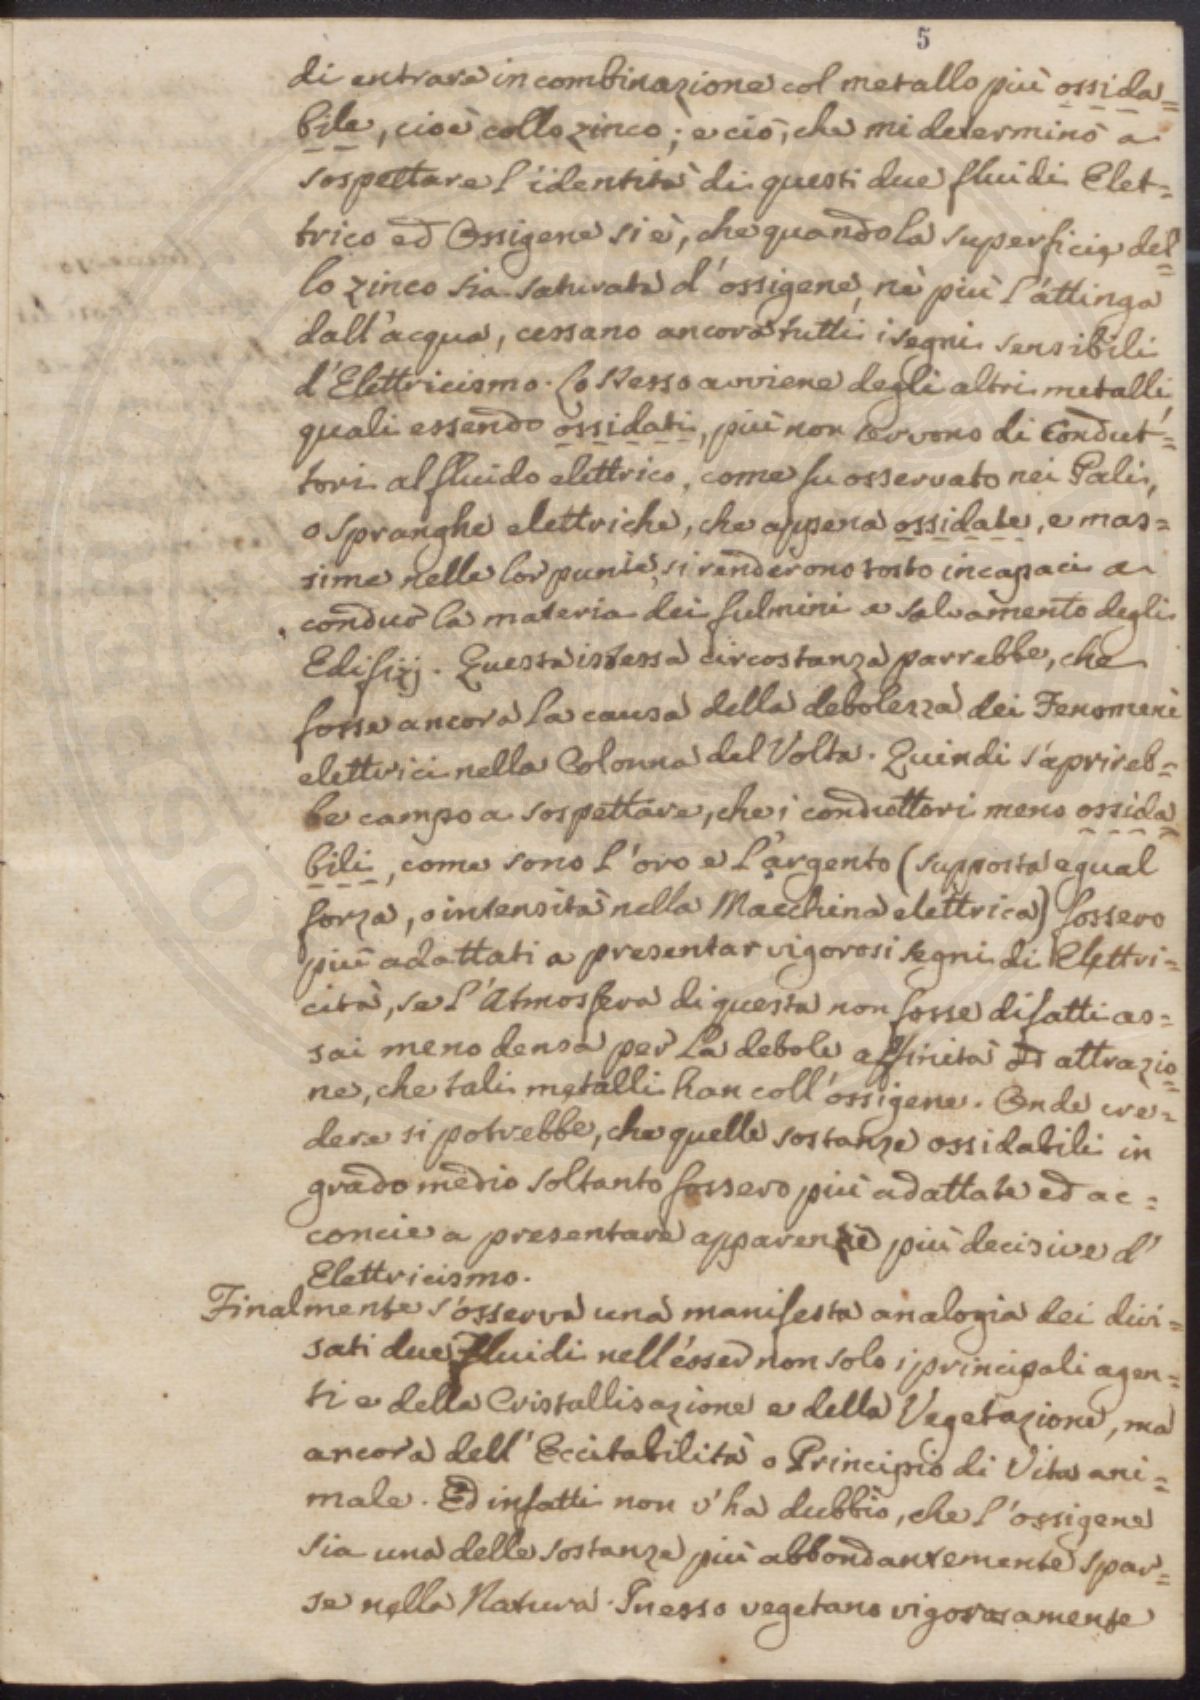 5
di entrare in combinazione col metallo più ossida=
bile, cioè collo zinco; e ciò, che mi determinò a
sospettare l'identità di questi due fluidi Elet=
trico ed Ossigene si è, che quando la superficie del=
lo zinco sia saturata d'ossigene, nè più l'attinga
dall'acqua, cessano ancora tutti i segni sensibili
d'Elettricismo. Lo stesso avviene degli altri metalli,
quali essendo ossidati, più non servono di Condut=
tori al fluido elettrico, come fu osservato nei Pali,
o Spranghe elettriche, che appena ossidate, e mas=
sime nelle lor punte, si renderono tosto incapaci a
condur la materia dei fulmini a salvamento degli
Edifizj. Questa istessa circostanza parrebbe, che
fosse ancora la causa della debolezza dei Fenomeni
elettrici nella Colonna del Volta. Quindi s'aprireb=
be campo a sospettare, che i conduttori meno ossida
bili, come sono l'oro e l'argento (supposta egual
forza, o intensità nella Macchina elettrica) fossero
più adattati a presentar vigorosi segni di Elettri=
cità, se l'Atmosfera di questa non fosse difatti as=
sai meno densa per la debole affinità od attrazio=
ne, che tali metalli han coll'ossigene. Onde cre=
dere si potrebbe, che quelle sostanze ossidabili in
grado medio soltanto fossero più adattate ed ac=
concie a presentare apparenze più decisive d'
Elettricismo.
Finalmente s'osserva una manifesta analogia dei divi=
sati due Fluidi nell'esser non solo i principali agen=
ti e della Cristallisazione e della Vegetazione, ma
ancora dell'Eccitabilità o Principio di Vita ani=
male. Ed infatti non v'ha dubbio, che l'ossigene
sia una delle sostanze più abbondantemente spar=
se nella Natura. In esso vegetano vigorosamente